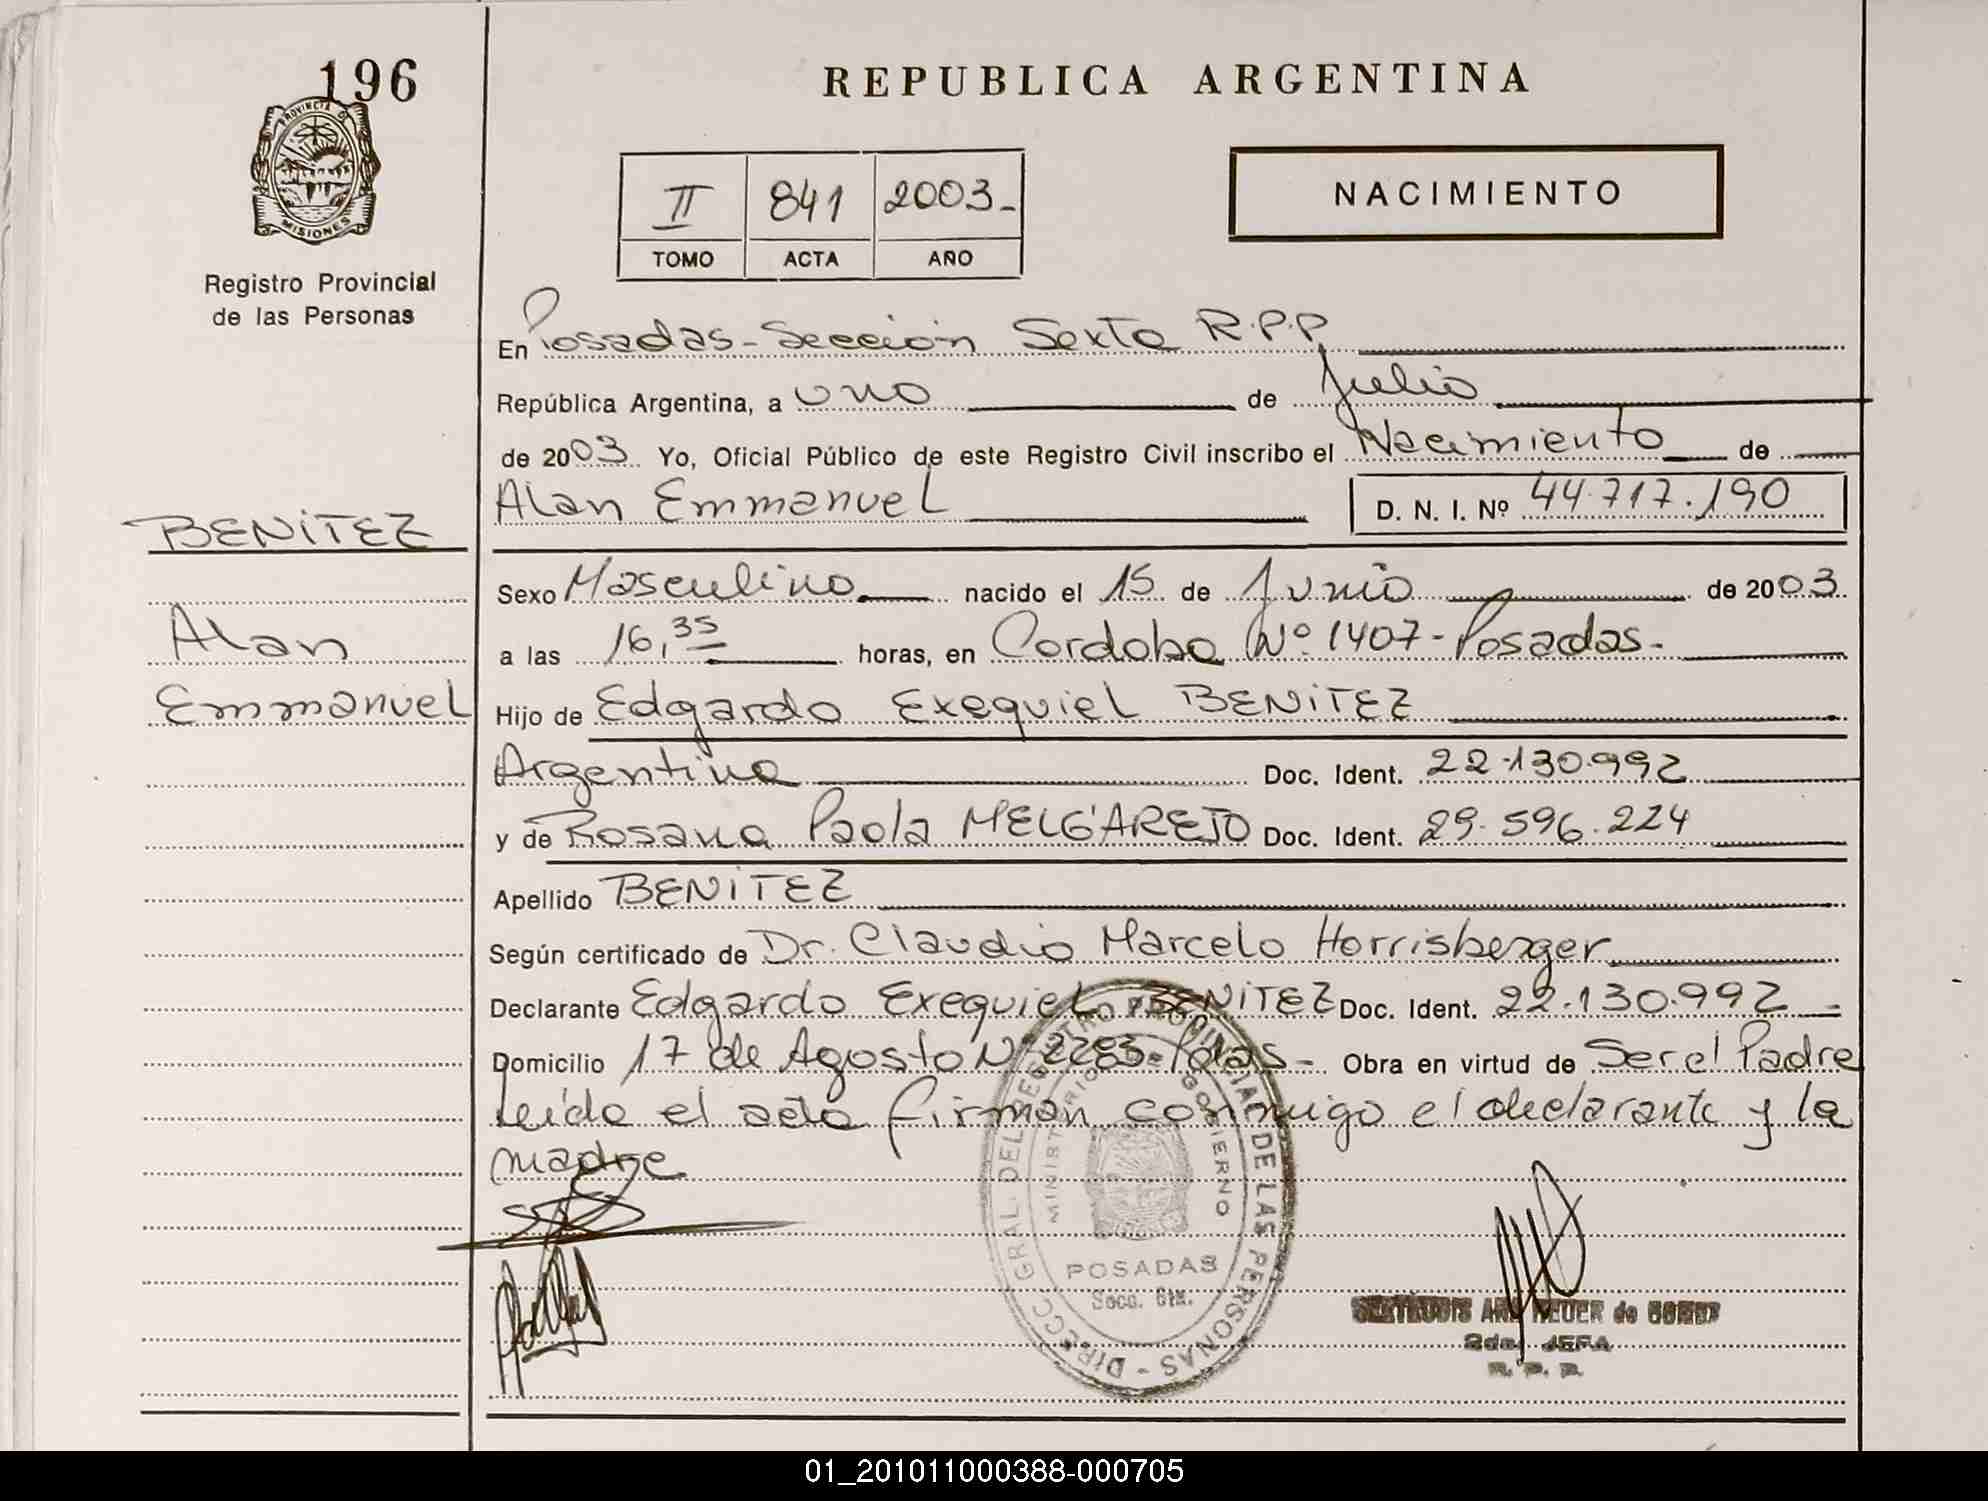 196
REPUBLICA ARGENTINA
PROVINCIA DE
MISIONES
Registro Provincial
de las Personas
II 841 2003-
TOMO ACTA AÑO
NACIMIENTO
En Posadas-Sección Sexta R.P.P.
República Argentina, a uno de Julio
de 2003 Yo, Oficial Público de este Registro Civil inscribo el Nacimiento de
Alan Emmanuel D. N. I. Nº 44.717.190
BENITEZ
Alan
Emmanuel
Sexo Masculino nacido el 15 de Junio de 2003
a las 16,35 horas, en Cordoba Nº 1407-Posadas-
Hijo de Edgardo Exequiel BENITEZ
Argentina Doc. Ident. 22.130.992
y de Rosana Paola MELGAREJO Doc. Ident. 29.596.224
Apellido BENITEZ
Según certificado de Dr. Claudio Marcelo Horrisberger
Declarante Edgardo Exequiel BENITEZ Doc. Ident. 22.130.992-
Domicilio 17 de Agosto Nº 2283-Pdas- Obra en virtud de Ser el Padre
Leída el acta firman conmigo el declarante y la
madre
DIRECC. GRAL. DEL REGISTRO PROVINCIAL DE LAS PERSONAS -
MINISTERIO DE GOBIERNO
POSADAS
Secc. 6ta.
de
2da. JEFA
R. P. P.
01_201011000388-000705